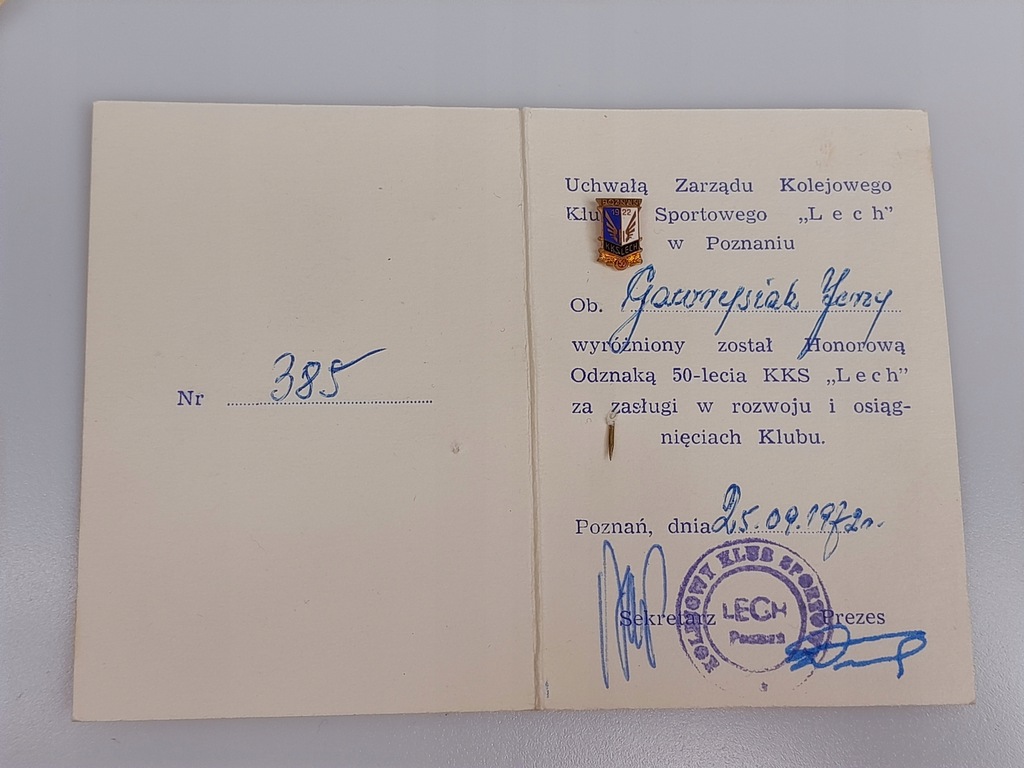 Nr 385
Uchwałą Zarządu Kolejowego
Klu Sportowego „Lech”
w Poznaniu
1922
KKS LECH
Ob. Gawrysiak Jerzy
wyróżniony został Honorową
Odznaką 50-lecia KKS „Lech”
za zasługi w rozwoju i osiąg-
nięciach Klubu.
Poznań, dnia 25.09.1972r.
KOLEJOWY KLUB SPORTOWY
LECH
Poznań
Sekretarz Prezes